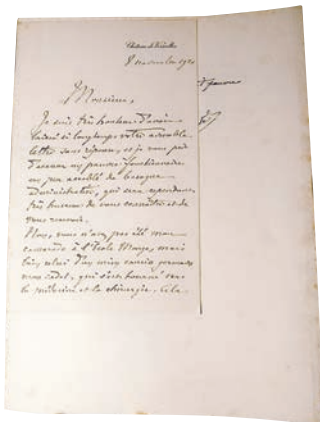 Château de Versailles
8 novembre 19
Monsieur,
Je suis très honteux d'avoir
laissé si longtemps votre aimable
lettre sans réponse, et je vous prie
d'excuser un pauvre fonctionnaire
un peu accablé de besogne
administrative, qui sera cependant
très heureux de vous connaître et de
vous recevoir.
Non, vous n'avez pas été mon
camarade à l'Ecole Monge, mais
bien celui d'un mien cousin germain
mon cadet, qui s'est tourné vers
la médecine et la chirurgie. Cela